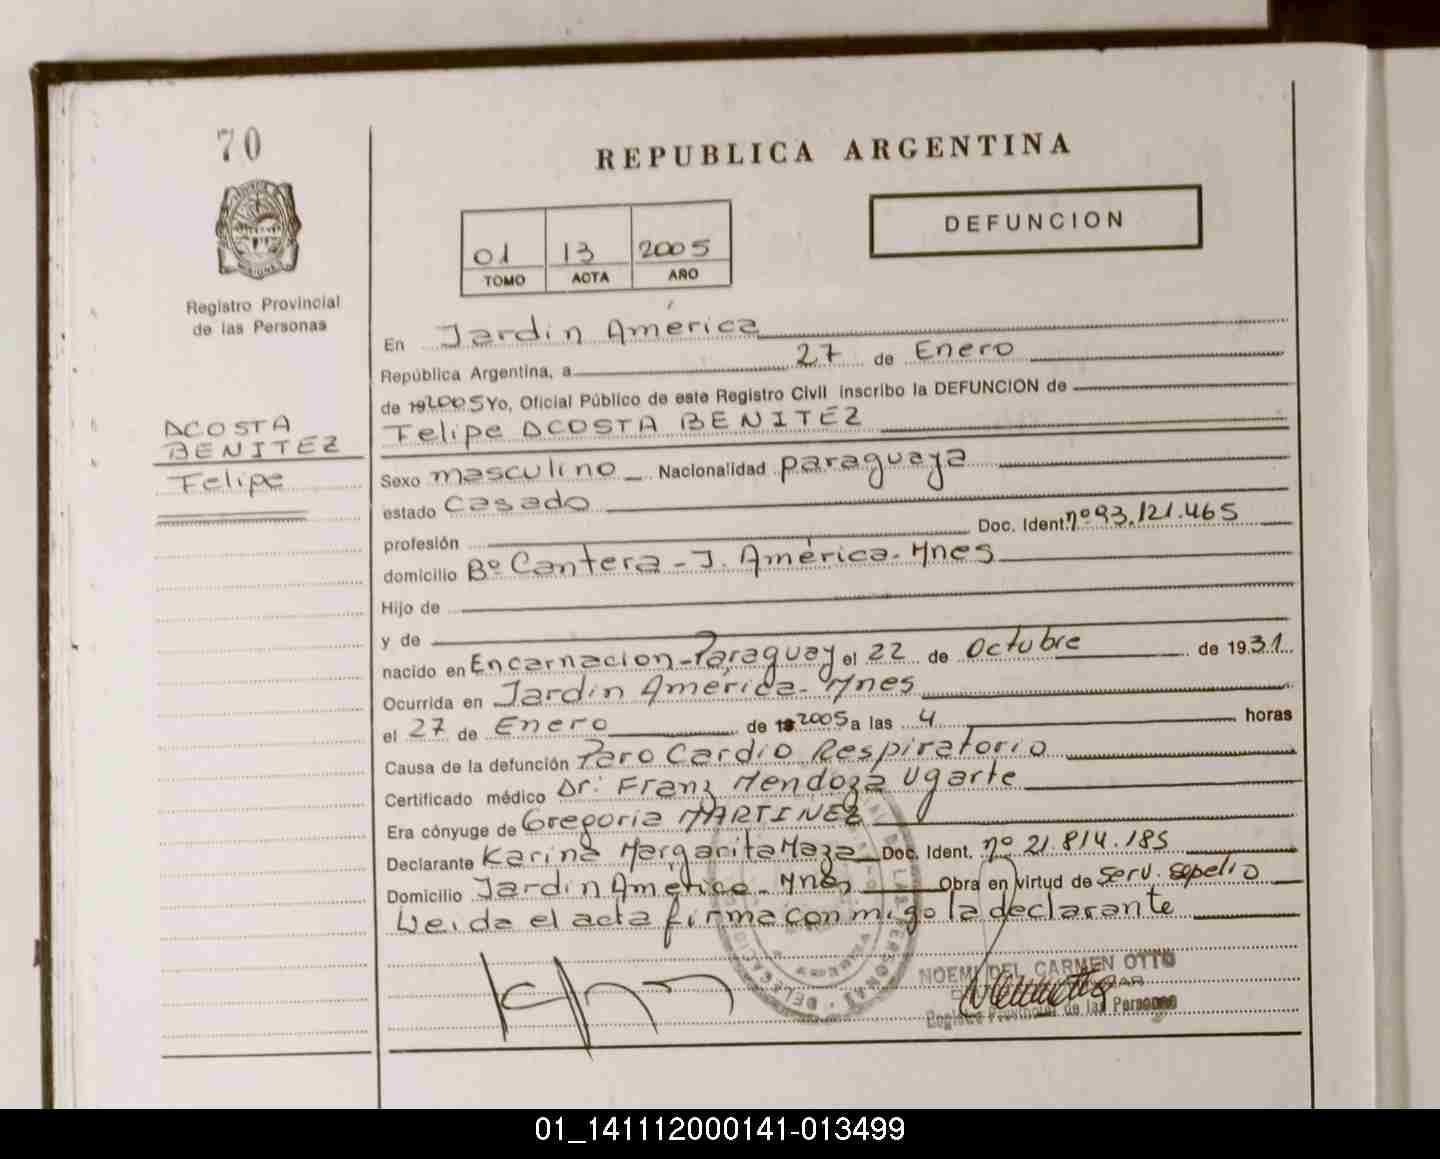 70
REPUBLICA ARGENTINA
01 13 2005
TOMO ACTA AÑO
DEFUNCION
Registro Provincial
de las Personas
ACOSTA
BENITEZ
Felipe
En Jardin América
República Argentina, a 27 de Enero
de 192005 Yo, Oficial Público de este Registro Civil inscribo la DEFUNCION de
Felipe ACOSTA BENITEZ
Sexo masculino Nacionalidad paraguaya
estado Casado
profesión Doc. Ident. nº 93.121.465
domicilio Bº Cantera - J. América - Mnes
Hijo de
y de
nacido en Encarnacion - Paraguay el 22 de Octubre de 1931.
Ocurrida en Jardin América - Mnes
el 27 de Enero de 192005 a las 4 horas
Causa de la defunción Paro Cardio Respiratorio
Certificado médico Dr: Franz Mendoza Ugarte
Era cónyuge de Gregoria MARTINEZ
Declarante Karina Margarita Maza Doc. Ident. nº 21.814.185
Domicilio Jardin América - Mnes Obra en virtud de serv. sepelio
Leida el acta firma conmigo la declarante
NOEMI DEL CARMEN OTTO
Registro Provincial de las Personas
01_141112000141-013499